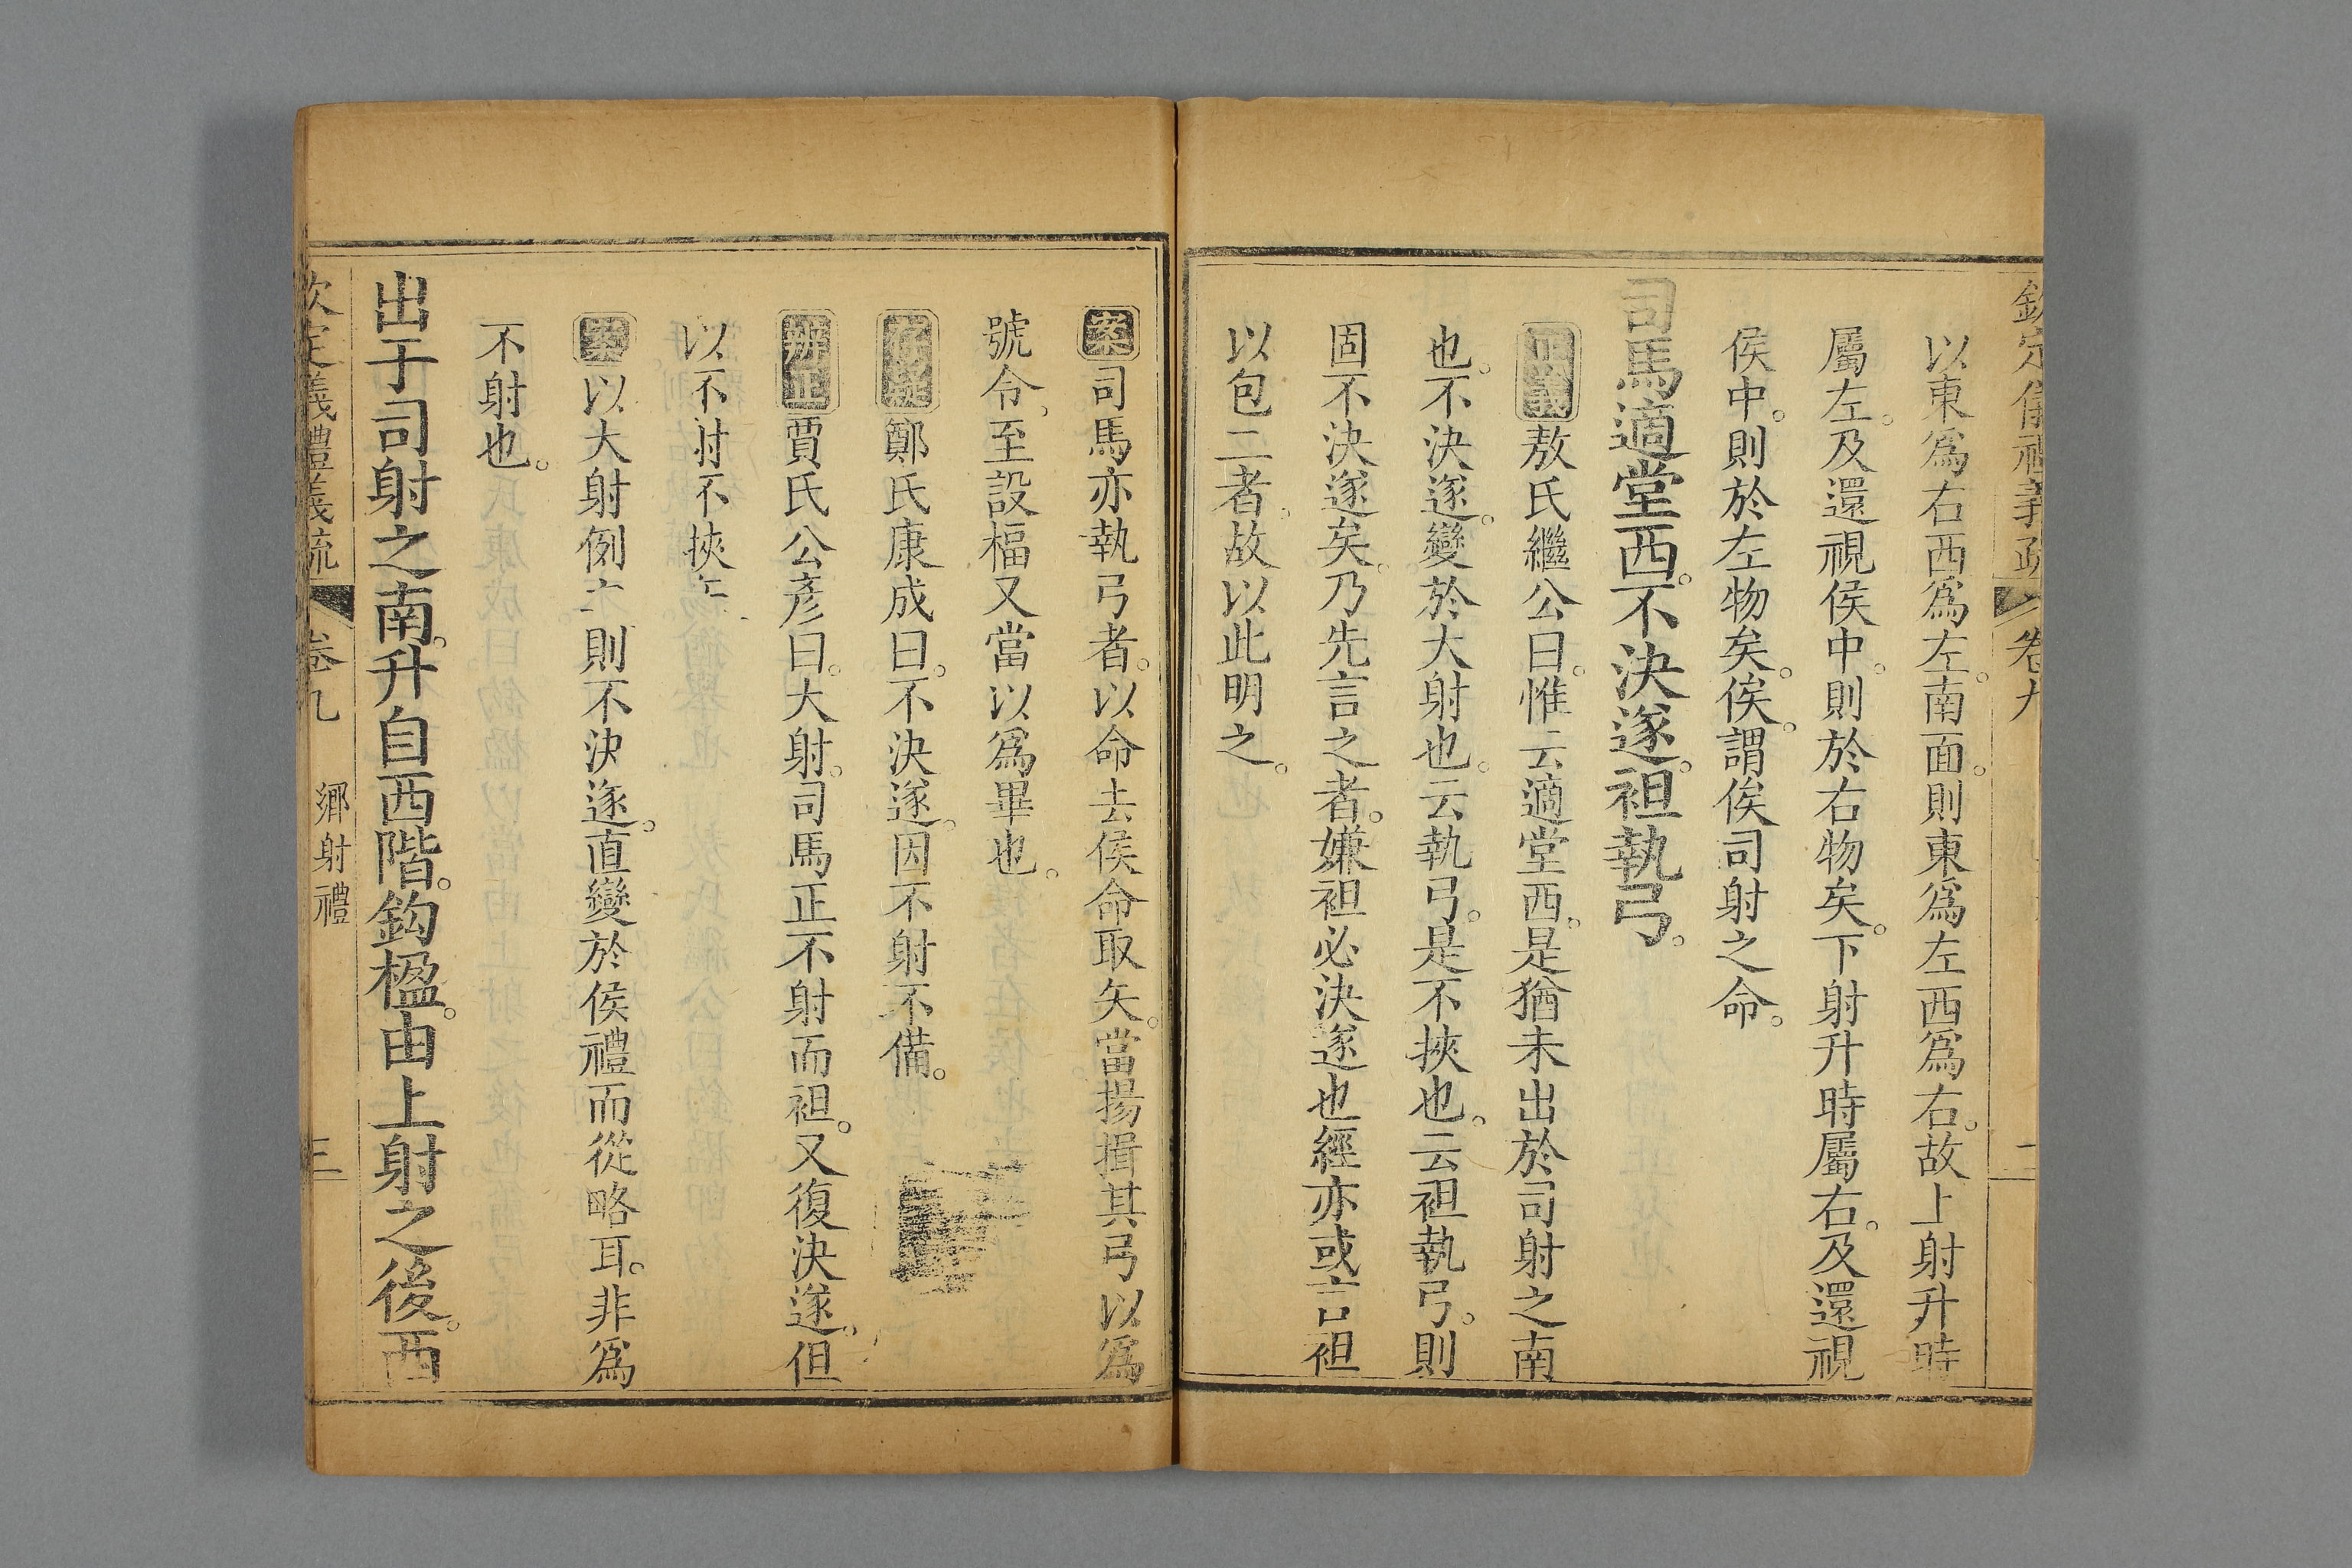 欽定儀禮義疏 卷九 二
以東爲右西爲左。南面。則東爲左西爲右。故上射升時
屬左。及還視侯中。則於右物矣。下射升時屬右。及還視
侯中。則於左物矣。俟。謂俟司射之命。
司馬適堂西。不決遂。袒執弓。
正義敖氏繼公曰。惟云適堂西。是猶未出於司射之南
也。不決遂。變於大射也。云執弓。是不挾也。云袒執弓。則
固不決遂矣。乃先言之者。嫌袒必決遂也經亦或言袒
以包二者。故以此明之。
案司馬亦執弓者。以命去侯命取矢。當揚揖其弓以爲
號令。至設楅又當以爲畢也。
存疑鄭氏康成曰。不決遂。因不射不備。
辨正賈氏公彥曰。大射。司馬正不射而袒。又復決遂。但
以不射不挾
案以大射例 則不決遂。直變於侯禮而從略耳。非爲
不射也。
出于司射之南。升自西階。鉤楹。由上射之後。西
欽定儀禮義疏 卷九 鄉射禮 三